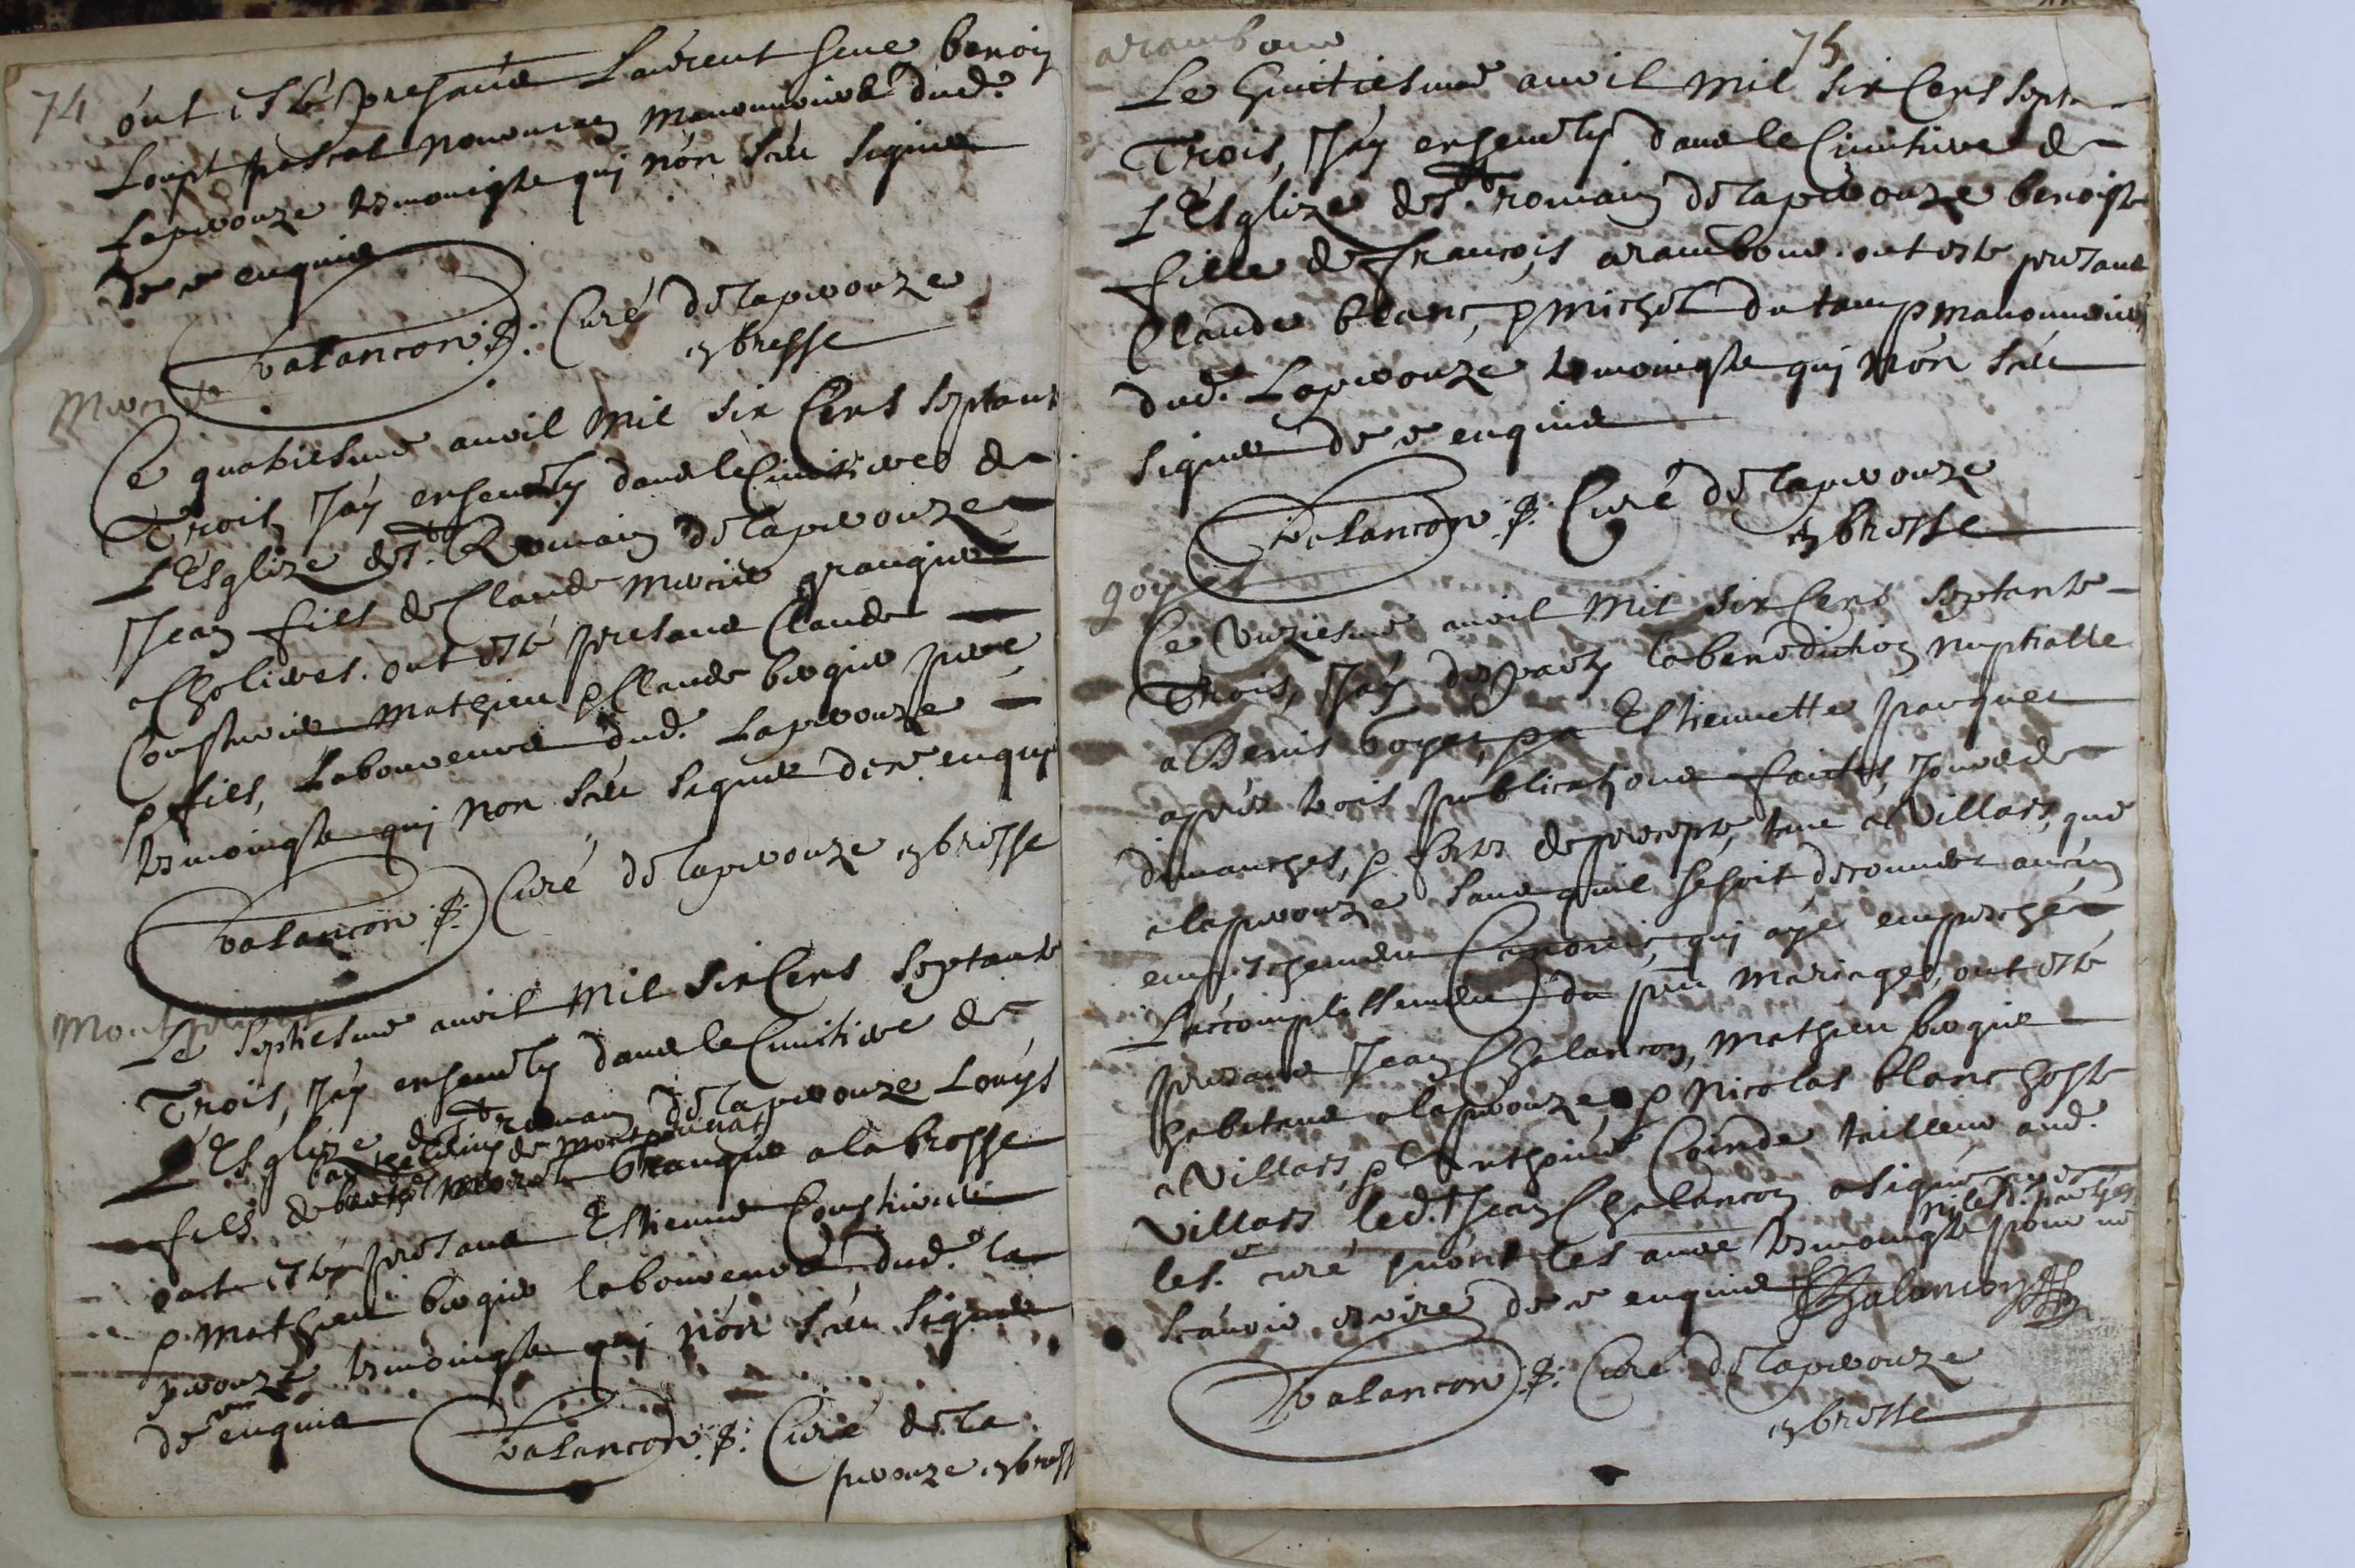 74
ont esté presans Laurent feue benoi
Loupt pascal manouvriers dud.
Laperouze tesmoingts qui non sceu signer
de ce enquis
balancon p. Curé de laperouze
en bresse
Ce quatriesme avril mil six cens septante
Trois, J'ay ensevely dans le Cimitiere de
L'Esglize de St. Romain de laperouze
Jean fils de Claude mercier granger
a Cholieres. ont esté presans Claude
Mathieu & Claude bergier pere
& fils, Laboureurs dud. Laperouze
tesmoingts qui non sceu signer de ce enquis
balancon p. Curé de laperouze en bresse
Mont
Le septiesme avril mil six cens septante
Trois, J'ay ensevely dans le Cimitiere de
L'Esglize de St. romain de laperouze Louys
fils de granger a la brosse
ont esté presans Estienne
& Mathieu bergier laboureurs dud. la
perouze tesmoingts qui non sceu signer
de ce enquis
balancon p. Curé de la
perouze en bress
75
arambour
Le huictiesme avril mil six cens septante
Trois, J'ay ensevely dans le Cimitiere de
L'Esglize de St. romain de laperouze benoiste
fille de françois arambour. ont esté presans
Claude blanc, & michel du tamp manouvriers
dud. Laperouze tesmoingts qui non sceu
signer de ce enquis
balancon p. Curé de laperouze
en bresse
goyet
Ce unziesme avril mil six cens septante
Trois, J'ay desparty la benediction nuptialle
a Denis goyet, Estiennette parquet
après trois publications faictes, jours de
dimanches, & festes de precepte, tant a Villars, que
a laperouze sans quil se soit descouvert aucun
empeschement Canonic, qui aye empesché
L'accomplissement du pnt mariage, ont esté
presans Jean Chalancon, Mathieu bergier
habitans a laperouze, & Nicolas blanc hoste
a Villars, & Anthoine Coinde tailleur aud.
Villars led. Jean Chalancon a signé avec
ni lesd. parties
les. curé non les autre tesmoingts pour ne
scavoir escrire de ce enquis Chalancon
balancon p. Curé de laperouze
en bresse